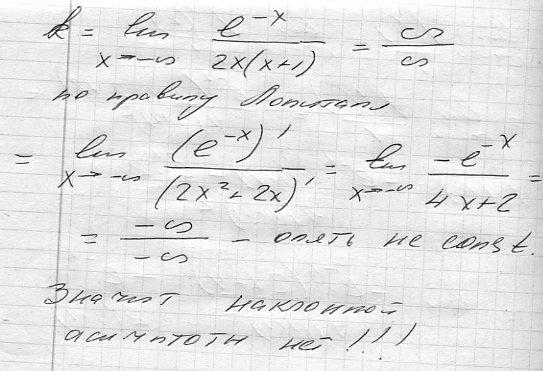 k = lim e^-x / 2x(x+1) = ∞/∞
x→-∞
по правилу Лопиталя
= lim (e^-x)' / (2x²+2x)' = lim -e^-x / 4x+2 =
x→-∞ x→-∞
= -∞/-∞ - опять не const.
Значит наклонной
асимптоты нет!!!